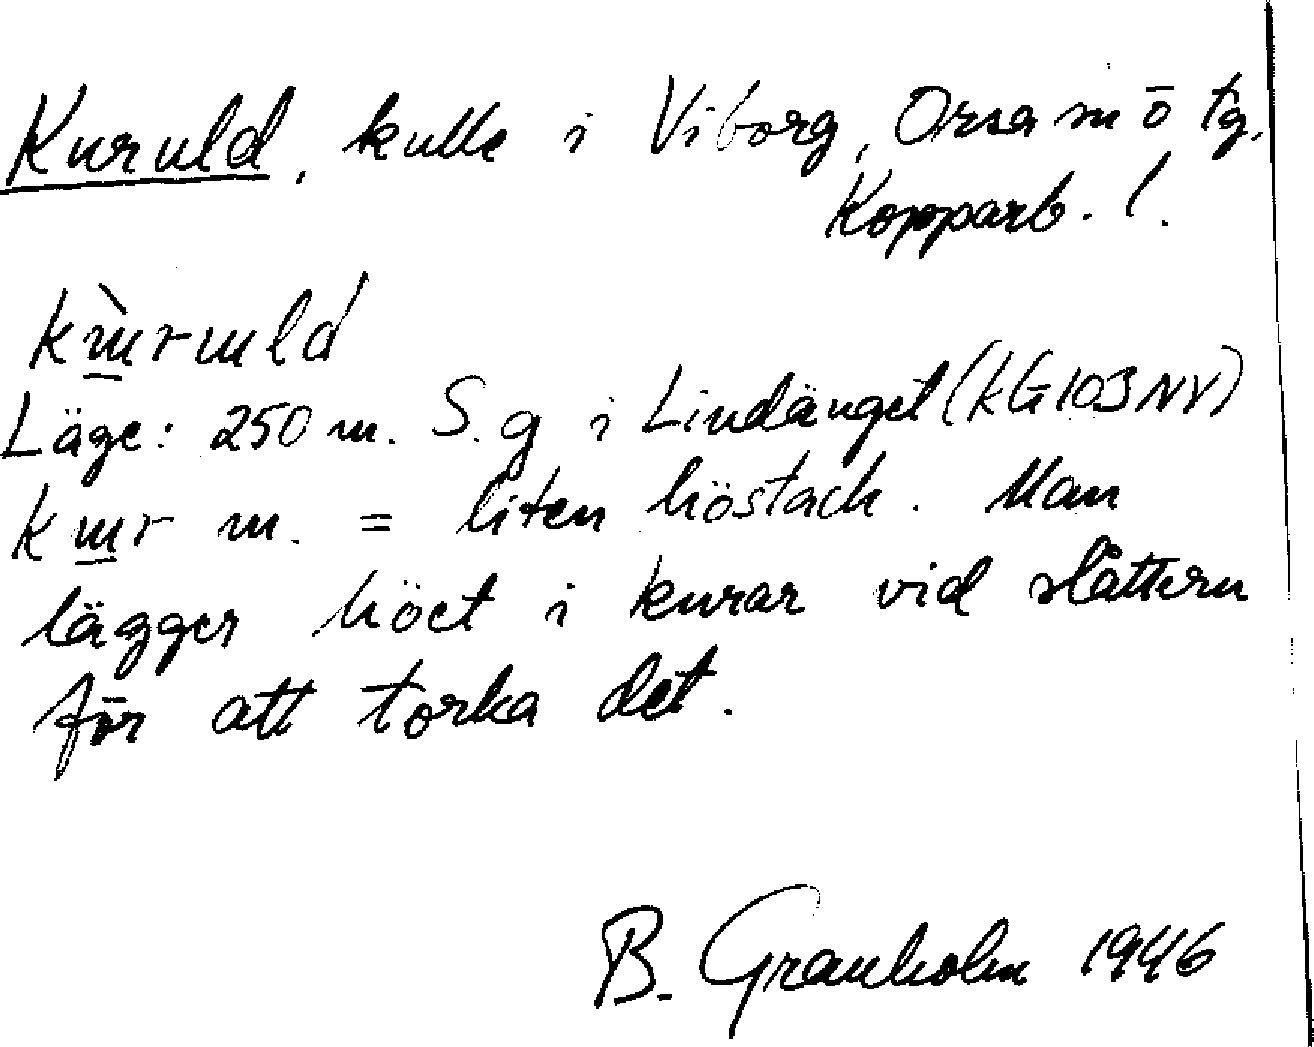 Kuruld, kulle i Viborg, Orsa m ö tg.
Kopparb. l.
kɯ̀rɯld
Läge: 250 m. S. g i Lindänget (kG103NV)
kɯr m. = liten höstack. Man
lägger höet i kurar vid slåttern
för att torka det.
B. Granholm 1946